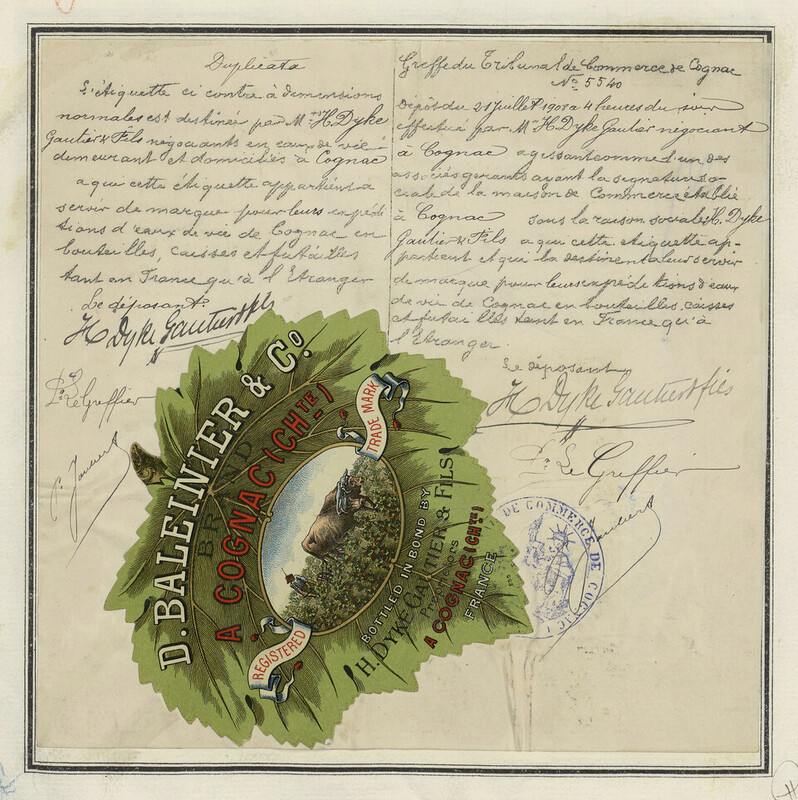 Duplicata
L'étiquette ci contre à dimensions
normales est destinée par Mrs H. Dyke
Gautier & Fils négociants en eaux de vie
demeurant et domiciliés à Cognac
a qui cette étiquette appartient a
servir de marque pour leurs expédi
tions d'eaux de vie de Cognac en
bouteilles, caisses et futailles
tant en France qu'à l'Etranger
Le déposant.
H Dyke Gautier & fils
Pr Le Greffier
Greffe du Tribunal de Commerce de Cognac
No 5540
Dépôt du 21 Juillet à 4 heures du soir
effectué par Mr H. Dyke Gautier négociant
à Cognac agissant comme l'un des
associés gerants ayant la signature so-
ciale de la maison de Commerce établie
à Cognac sous la raison sociale H. Dyke
Gautier & Fils a qui cette etiquette ap-
partient et qui la destinent a leur servir
de marque pour leurs expéditions d'eaux
de vie de Cognac en bouteilles, caisses
et futailles tant en France qu'à
l'Etranger.
Le déposant
H Dyke Gautier & fils
Pr Le Greffier
D. BALEINIER & Co.
BRAND
A COGNAC (CHTE)
TRADE MARK
REGISTERED
BOTTLED IN BOND BY
H. DYKE GAUTIER & FILS
Proprietors
A COGNAC (CHTE)
FRANCE
DE COMMERCE DE COGNAC